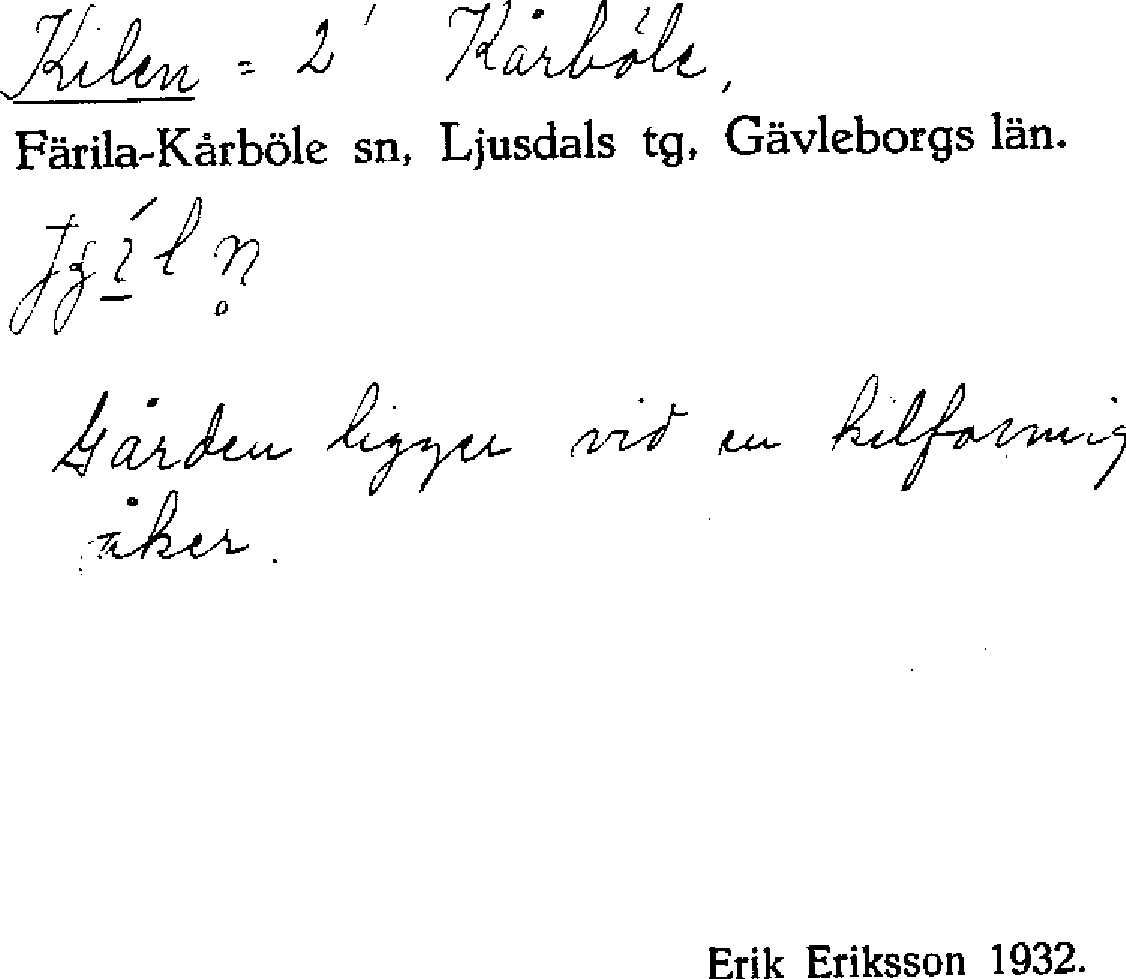 Kilen = 2' Kårböle,
Färila-Kårböle sn, Ljusdals tg, Gävleborgs län.
Gården ligger vid en kilformig
åker.
Erik Eriksson 1932.